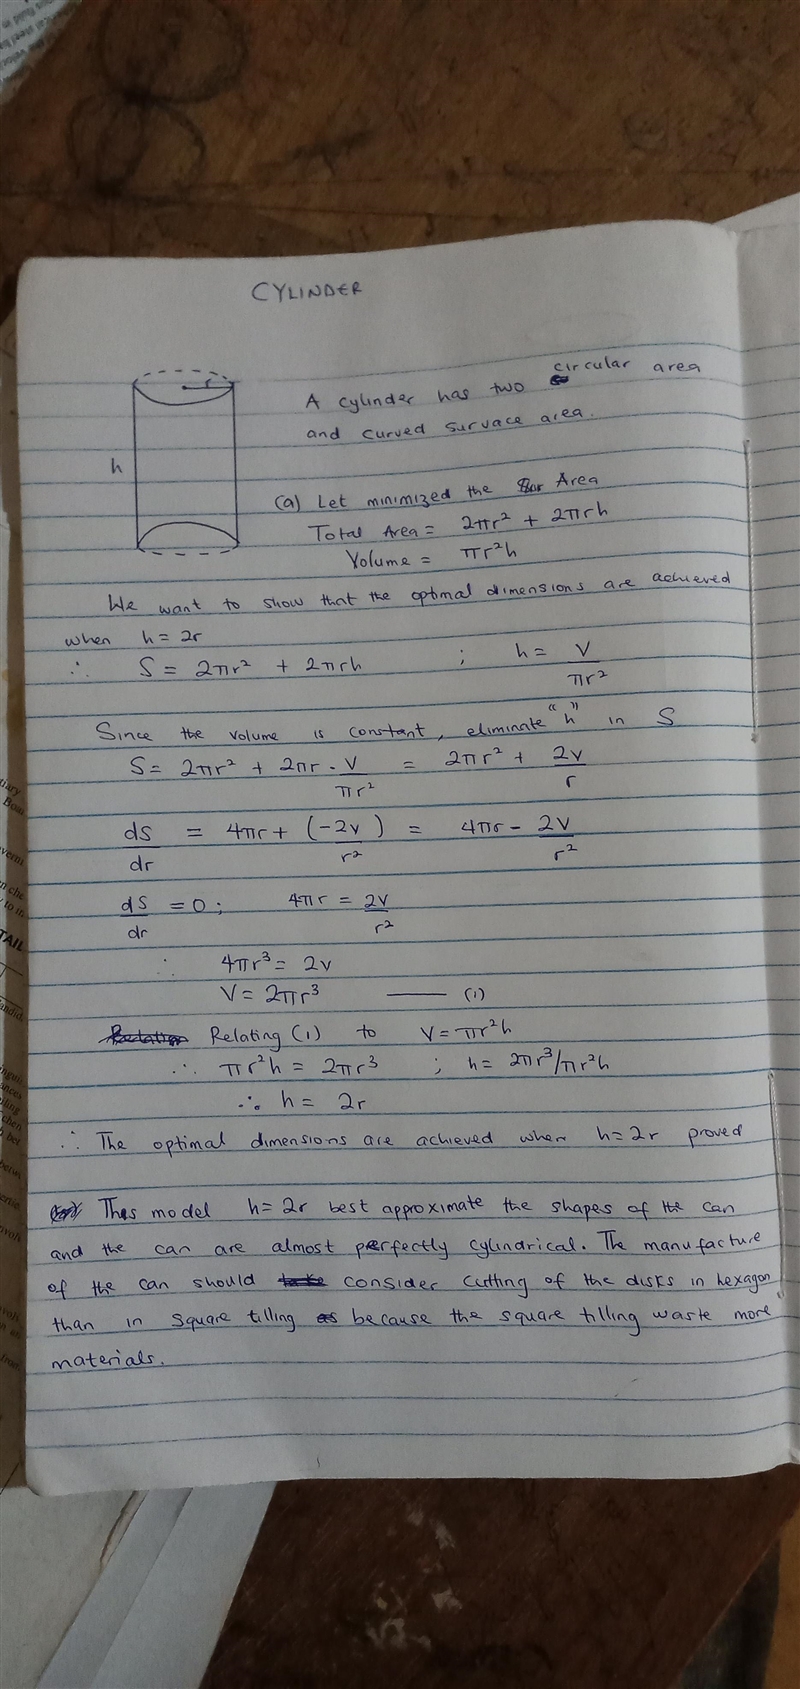 CYLINDER
r
h
A cylinder has two circular area
and curved survace area.
(a) Let minimized the Area
Total Area = 2πr² + 2πrh
Volume = πr²h
We want to show that the optimal dimensions are achieved
when h = 2r
∴ S = 2πr² + 2πrh ; h = V/πr²
Since the volume is constant, eliminate "h" in S
S = 2πr² + 2πr · V/πr² = 2πr² + 2v/r
dS/dr = 4πr + (-2v/r²) = 4πr - 2v/r²
dS/dr = 0; 4πr = 2v/r²
∴ 4πr³ = 2v
V = 2πr³ —— (1)
Relating (1) to V = πr²h
∴ πr²h = 2πr³ ; h = 2πr³/πr²h
∴ h = 2r
∴ The optimal dimensions are achieved when h = 2r proved
This model h = 2r best approximate the shapes of the can
and the can are almost perfectly cylindrical. The manufacture
of the can should consider cutting of the disks in hexagon
than in square tilling because the square tilling waste more
materials.